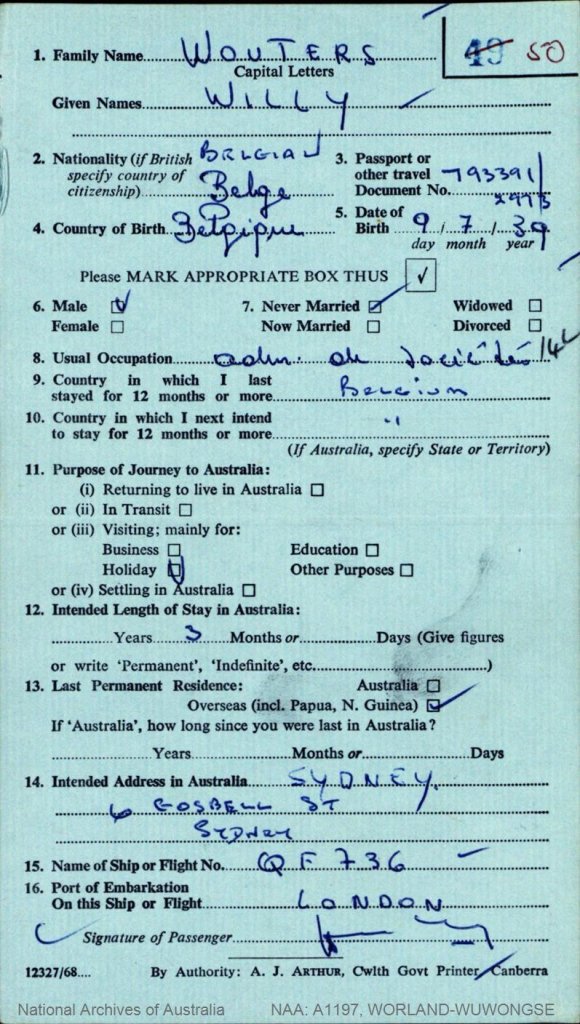 49 50
1. Family Name WOUTERS
Capital Letters
Given Names WILLY
2. Nationality (if British specify country of citizenship) BELGIAN Belge
3. Passport or other travel Document No. 793391 2993
4. Country of Birth Belgique
5. Date of Birth 9 / 7 / 39
day month year
Please MARK APPROPRIATE BOX THUS √
6. Male √ 7. Never Married √ Widowed
Female Now Married Divorced
8. Usual Occupation adm. de sociétés
9. Country in which I last
stayed for 12 months or more Belgium
10. Country in which I next intend
to stay for 12 months or more "
(If Australia, specify State or Territory)
11. Purpose of Journey to Australia:
(i) Returning to live in Australia
or (ii) In Transit
or (iii) Visiting; mainly for:
Business Education
Holiday √ Other Purposes
or (iv) Settling in Australia
12. Intended Length of Stay in Australia:
Years 3 Months or Days (Give figures
or write 'Permanent', 'Indefinite', etc. )
13. Last Permanent Residence: Australia
Overseas (incl. Papua, N. Guinea) √
If 'Australia', how long since you were last in Australia?
Years Months or Days
14. Intended Address in Australia SYDNEY.
6 GOSBELL ST
SYDNEY
15. Name of Ship or Flight No. QF 736
16. Port of Embarkation
On this Ship or Flight LONDON
Signature of Passenger
12327/68.... By Authority: A. J. ARTHUR, Cwlth Govt Printer, Canberra
National Archives of Australia NAA: A1197, WORLAND-WUWONGSE